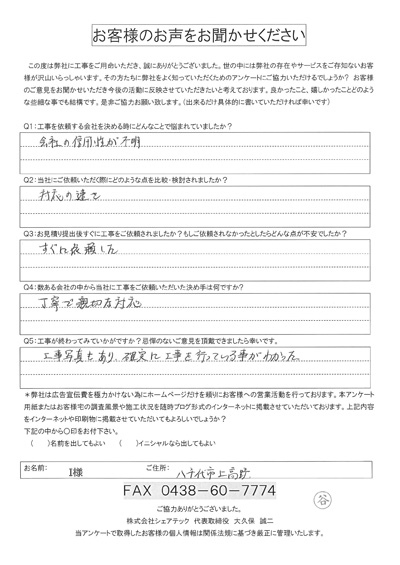 お客様のお声をお聞かせください
この度は弊社に工事をご用命いただき、誠にありがとうございました。世の中には弊社の存在やサービスをご存知ないお客
様が沢山いらっしゃいます。その方たちに弊社をよく知っていただくためのアンケートにご協力いただけるでしょうか? お客様
のご意見をお聞かせいただき今後の活動に反映させていただきたいと考えております。良かったこと、嬉しかったことどのよう
な些細な事でも結構です。是非ご協力お願い致します。(出来るだけ具体的に書いていただければ幸いです)
Q1:工事を依頼する会社を決める時にどんなことで悩まれていましたか?
会社の信用性が不明
Q2:当社にご依頼いただく際にどのような点を比較・検討されましたか?
対応の速さ
Q3:お見積り提出後すぐに工事をご依頼されましたか?もしご依頼されなかったとしたらどんな点が不安でしたか?
すぐに依頼した
Q4:数ある会社の中から当社に工事をご依頼いただいた決め手は何ですか?
丁寧で親切な対応
Q5:工事が終わってみていかがですか?忌憚のないご意見を頂戴できましたら幸いです。
工事写真もあり、確実に工事を行っている事がわかった。
*弊社は広告宣伝費を極力かけない為にホームページだけを頼りにお客様への営業活動を行っております。本アンケート
用紙またはお客様宅の調査風景や施工状況を随時ブログ形式のインターネットに掲載させていただいております。上記内容
をインターネットや印刷物に掲載させていただいてもよろしいでしょうか?
下記の中から〇印をお付下さい。
( )名前を出してもよい ( )イニシャルなら出してもよい
お名前: I様 ご住所: 八千代市上高野
FAX 0438-60-7774
谷
ご協力ありがとうございました。
株式会社シェアテック 代表取締役 大久保 誠二
当アンケートで取得したお客様の個人情報は関係法規に基づき厳正に管理いたします。